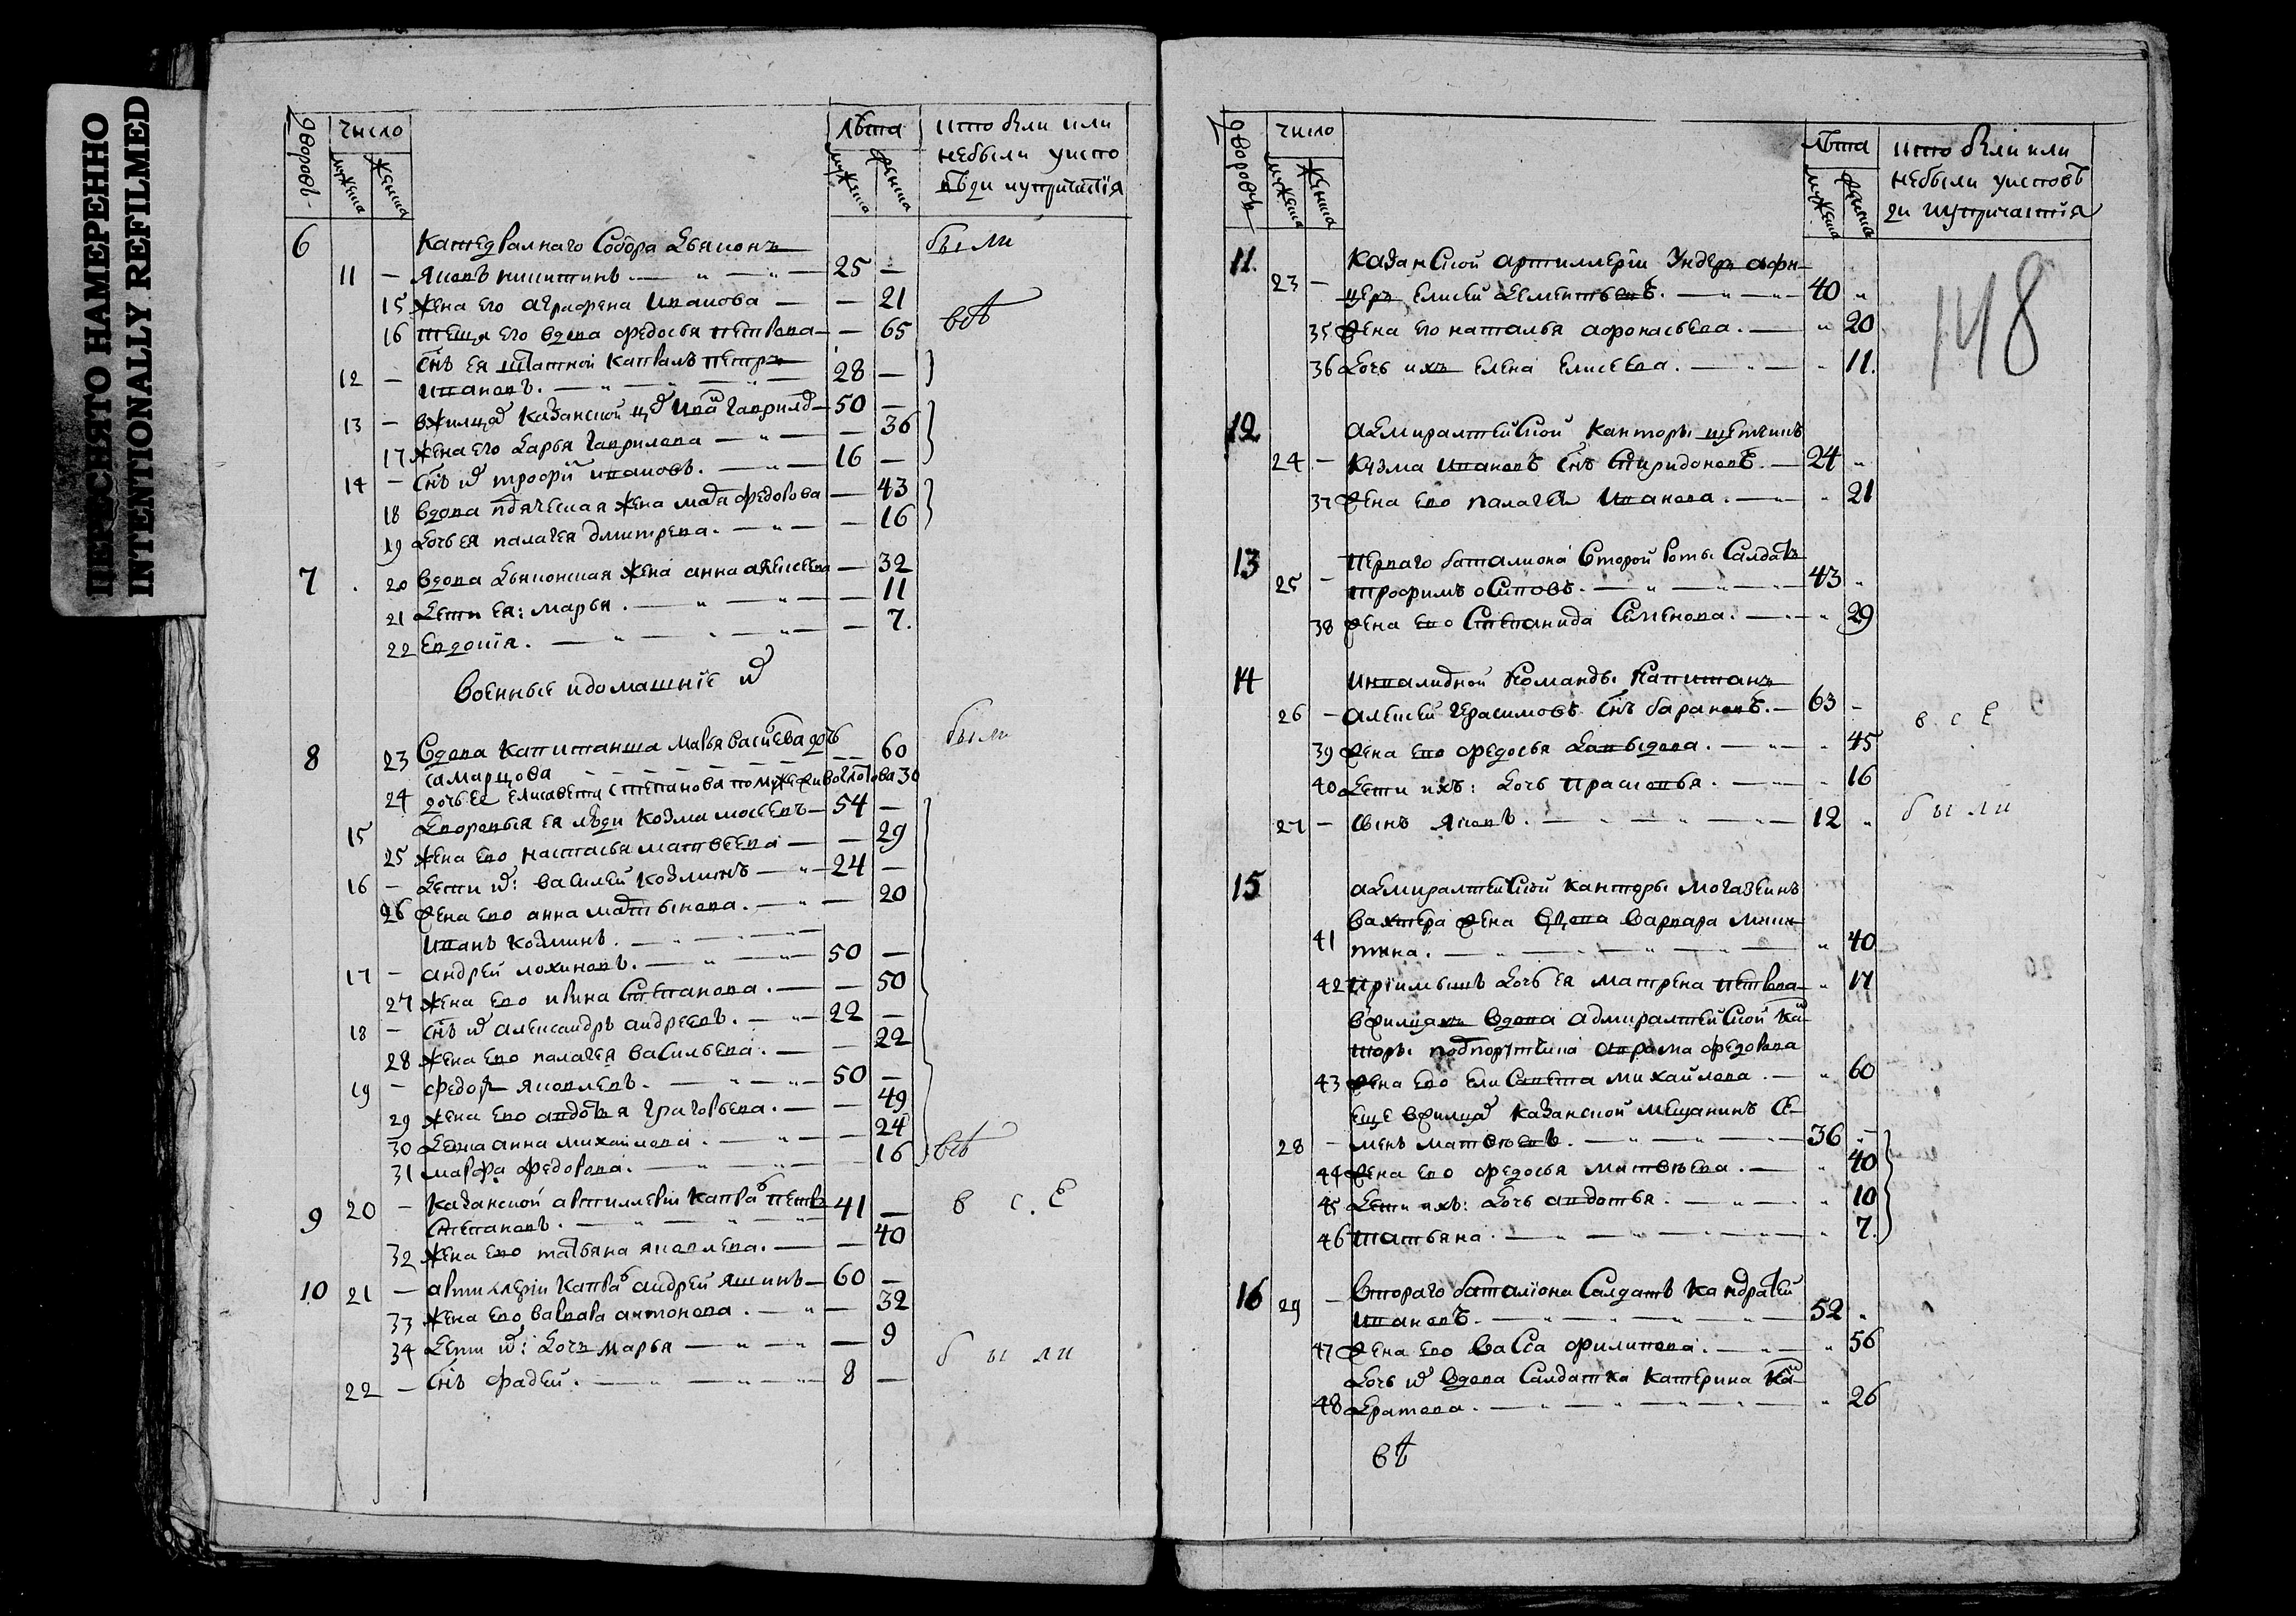 ПЕРЕСНЯТО НАМЕРЕННО
INTENTIONALLY REFILMED
дворовъ
число
мужеска
женска
лѣта
мужеска
женска
кто были или
небыли у испо
вѣди и у причастїя
6 Катедралнаго Собора дьяконъ были
11 — Яковъ никитинъ. — 25 —
15 жена его аграфена иванова — — 21
16 теща его вдова федосья петрова — — 65 всѣ
снъ ея штатной капралъ петръ
12 — ивановъ. — 28 —
13 — вжилцах казанской цех иван гаврилов — 50 —
17 жена его дарья гаврилова — — 36
14 — снъ их трофим ивановъ. — 16 —
18 вдова подяческая жена мавра федорова — 43
19 дочь ея палагея дмитрева. — — 16
7 20 вдова дьяконская жена анна алексеева — 32
21 дети ея: марья. — — 11
22 евдокїя. — — 7.
военные и домашнїе их
8 23 вдова капитанша марья васильева дочь — 60 были
самарцова
24 дочь ее елисавета степанова по мужу 30
дворовыя ея люди козма мосеевъ — 54 —
15
25 жена ево настасья матвеева — — 29
16 — дети их: василей козминъ — 24 —
26 жена ево анна мартынова. — — 20
иванъ козминъ. —
17 — андрей логиновъ. — 50 —
27 жена ево ирина степанова. — — 50
18 — снъ их александръ андреевъ. — 22 —
28 жена ево палагея васильева. — — 22
19 — федоръ яковлевъ. — 50 —
29 жена ево авдотья григорьева. — — 49
30 девка анна михайлова. — — 24
31 марфа федорова. — — 16 всѣ
9 20 — казанской артиллерїи капрал петръ 41 — в с е
степановъ. —
32 жена ево татьяна яковлева. — — 40
10 21 — артиллерїи капрал андрей яшинъ — 60 —
33 жена ево варвара антонова. — — 32
34 дети их: дочь марья — — 9
22 — снъ фадей. — 8 — были
дворовъ
число
мужеска
женска
лѣта
мужеска
женска
кто были или
небыли у исповѣ
ди и у причастїя
148
11. казанской артиллерїи ундеръ афи-
23 — церъ елисей дементьевъ. — 40 „
35 жена его наталья афонасьева. — „ 20
36 дочь ихъ елена елисеева. — „ 11.
12 адмиралтейской канторы щетчикъ
24 — кузма ивановъ снъ спиридоновъ. — 24 „
37 жена ево палагея иванова. — „ 21
13 перваго баталиона второй роты салдатъ
25 — трофимъ осиповъ. — 43 „
38 жена ево степанида семенова. — „ 29
14 инвалидной команды капитанъ
26 — алексей герасимовъ снъ барановъ. — 63 — в с е
39 жена ево федосья давыдова. — „ 45
40 дети ихъ: дочь прасковья. — „ 16
27 — сынъ яковъ. — 12 „ были
15 адмиралтейской канторы могазеинъ
вахтера жена вдова варвара ники-
41 тина. — „ 40
42 прїимышъ дочь ея матрена петрова — „ 17
вжилцахъ вдова адмиралтейской кан-
торы подпорутчика аврама федорова
43 жена ево елисавета михайлова. — „ 60
еще вжилцах казанской мещанинъ се-
28 — менъ матвѣевъ. — 36 „
44 жена ево федосья матвѣева. — „ 40
45 дети ихъ: дочь авдотья. — „ 10
46 татьяна. — „ 7.
16 29 — втораго баталїона салдатъ кандратей
ивановъ. — 52 „
47 жена ево васса филипова. — „ 56
дочь их вдова салдатка катерина кан-
48 дратова. — „ 26
всѣ